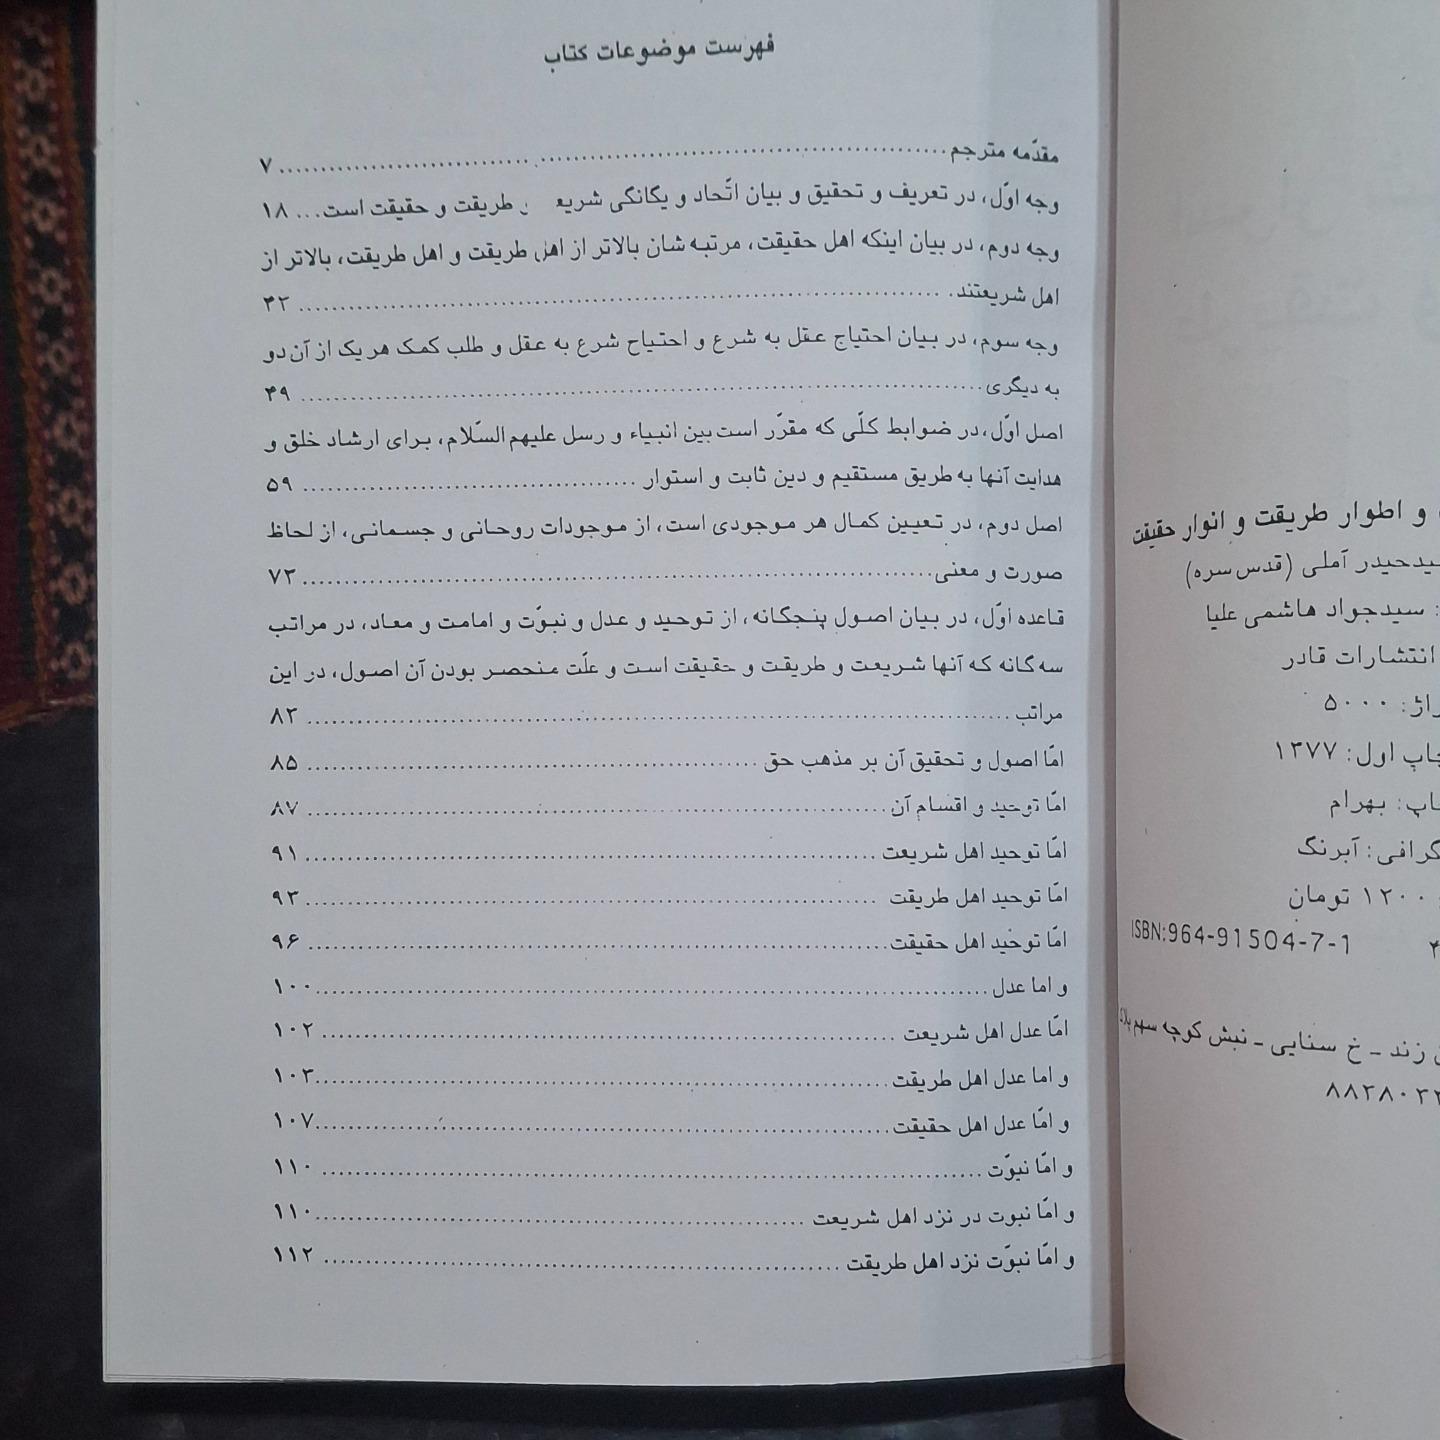 فهرست موضوعات کتاب
مقدّمه مترجم ........ ۷
وجه اوّل، در تعریف و تحقیق و بیان اتّحاد و یگانگی شریع و طریقت و حقیقت است... ۱۸
وجه دوم، در بیان اینکه اهل حقیقت، مرتبه شان بالاتر از اهل طریقت و اهل طریقت، بالاتر از
اهل شریعتند. ........ ۴۲
وجه سوم، در بیان احتیاج عقل به شرع و احتیاج شرع به عقل و طلب کمک هر یک از آن دو
به دیگری ........ ۴۹
اصل اوّل، در ضوابط کلّی که مقرّر است بین انبیاء و رسل علیهم السّلام، برای ارشاد خلق و
هدایت آنها به طریق مستقیم و دین ثابت و استوار ........ ۵۹
اصل دوم، در تعیین کمال هر موجودی است، از موجودات روحانی و جسمانی، از لحاظ
صورت و معنی ........ ۷۳
قاعده اوّل، در بیان اصول پنجگانه، از توحید و عدل و نبوّت و امامت و معاد، در مراتب
سه گانه که آنها شریعت و طریقت و حقیقت است و علّت منحصر بودن آن اصول، در این
مراتب ........ ۸۲
امّا اصول و تحقیق آن بر مذهب حق ........ ۸۵
امّا توحید و اقسام آن ........ ۸۷
امّا توحید اهل شریعت ........ ۹۱
امّا توحید اهل طریقت ........ ۹۳
امّا توحید اهل حقیقت ........ ۹۶
و اما عدل ........ ۱۰۰
امّا عدل اهل شریعت ........ ۱۰۲
و اما عدل اهل طریقت ........ ۱۰۳
و امّا عدل اهل حقیقت ........ ۱۰۷
و امّا نبوّت ........ ۱۱۰
و امّا نبوت در نزد اهل شریعت ........ ۱۱۰
و امّا نبوّت نزد اهل طریقت ........ ۱۱۲
و اطوار طریقت و انوار حقیقت
یدحیدر آملی (قدس سره)
: سیدجواد هاشمی علیا
انتشارات قادر
راژ: ۵۰۰۰
چاپ اول: ۱۳۷۷
اپ: بهرام
گرافی: آبرنگ
۱۲۰۰ تومان
ISBN:964-91504-7-1
زند ـ خ سنایی ـ نبش کوچه سهم